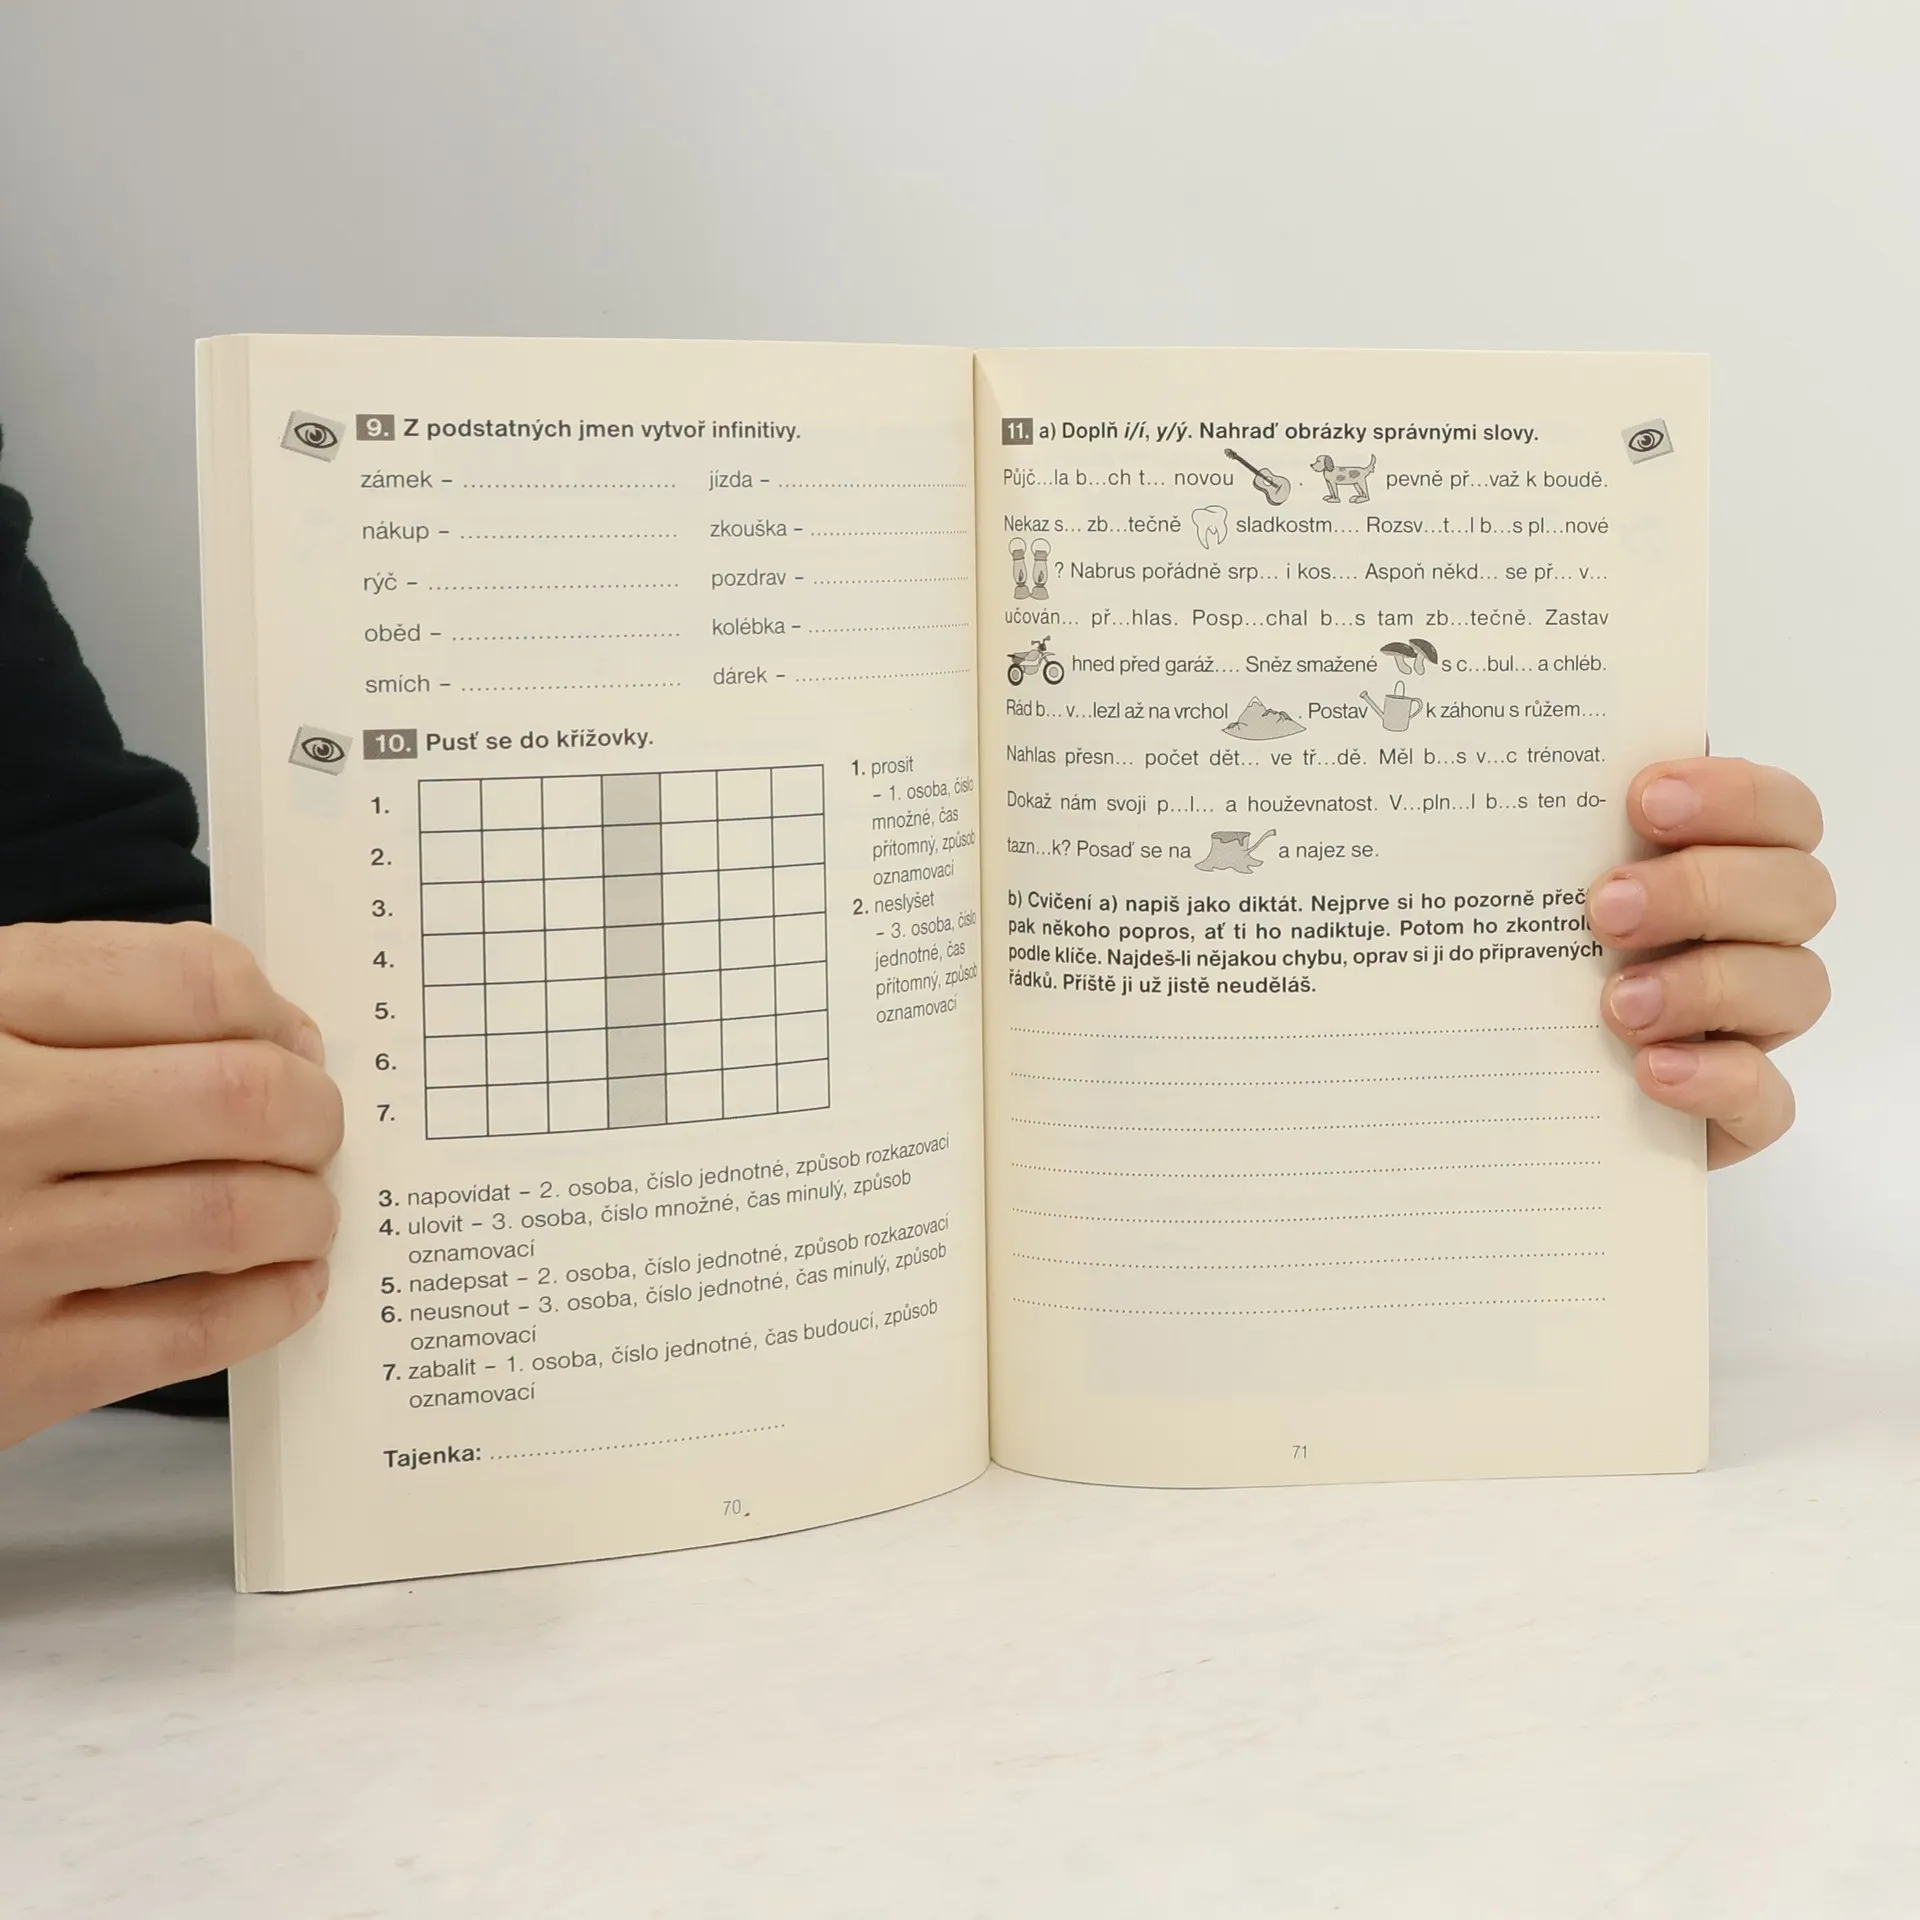 9. Z podstatných jmen vytvoř infinitivy.
zámek – .............................. jízda – ..............................
nákup – .............................. zkouška – ..............................
rýč – .............................. pozdrav – ..............................
oběd – .............................. kolébka – ..............................
smích – .............................. dárek – ..............................
10. Pusť se do křížovky.
1.
2.
3.
4.
5.
6.
7.
1. prosit
– 1. osoba, číslo
množné, čas
přítomný, způsob
oznamovací
2. neslyšet
– 3. osoba, číslo
jednotné, čas
přítomný, způsob
oznamovací
3. napovídat – 2. osoba, číslo jednotné, způsob rozkazovací
4. ulovit – 3. osoba, číslo množné, čas minulý, způsob
oznamovací
5. nadepsat – 2. osoba, číslo jednotné, způsob rozkazovací
6. neusnout – 3. osoba, číslo jednotné, čas minulý, způsob
oznamovací
7. zabalit – 1. osoba, číslo jednotné, čas budoucí, způsob
oznamovací
Tajenka: ..............................
70
11. a) Doplň i/í, y/ý. Nahraď obrázky správnými slovy.
Půjč...la b...ch t... novou . pevně př...važ k boudě.
Nekaz s... zb...tečně sladkostm.... Rozsv...t...l b...s pl...nové
? Nabrus pořádně srp... i kos.... Aspoň někd... se př... v...
učován... př...hlas. Posp...chal b...s tam zb...tečně. Zastav
hned před garáž.... Sněz smažené s c...bul... a chléb.
Rád b... v...lezl až na vrchol . Postav k záhonu s růžem....
Nahlas přesn... počet dět... ve tř...dě. Měl b...s v...c trénovat.
Dokaž nám svoji p...l... a houževnatost. V...pln...l b...s ten do-
tazn...k? Posaď se na a najez se.
b) Cvičení a) napiš jako diktát. Nejprve si ho pozorně
pak někoho popros, ať ti ho nadiktuje. Potom ho
podle klíče. Najdeš-li nějakou chybu, oprav si ji do připravených
řádků. Příště ji už jistě neuděláš.
71